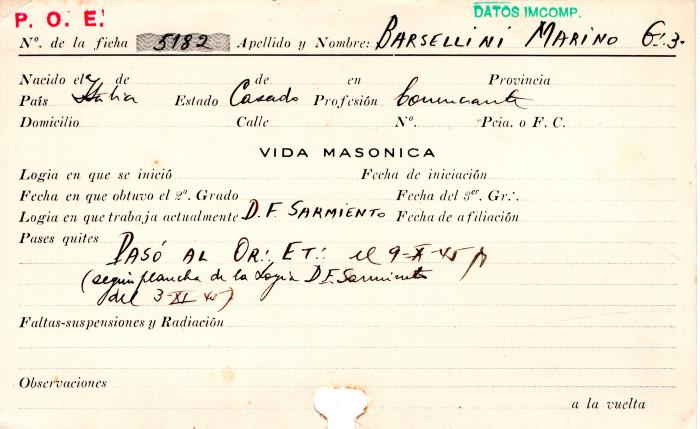 P. O. E.
DATOS IMCOMP.
Nº. de la ficha 5182 Apellido y Nombre: BARSELLINI MARINO G∴3-
Nacido el de de en Provincia
País Italia Estado Casado Profesión Comerciante
Domicilio Calle Nº. Pcia. o F. C.
VIDA MASONICA
Logia en que se inició Fecha de iniciación
Fecha en que obtuvo el 2º. Grado Fecha del 3er. Gr∴
Logia en que trabaja actualmente D. F. SARMIENTO Fecha de afiliación
Pases quites PASÓ AL OR∴ ET∴ el 9-X-45
(según plancha de la Logia D F. Sarmiento
del 3-XI 45)
Faltas-suspensiones y Radiación
Observaciones
a la vuelta